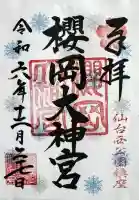 奉拝
仙台西公園鎮座
櫻岡大神宮
令和六年十二月二七日